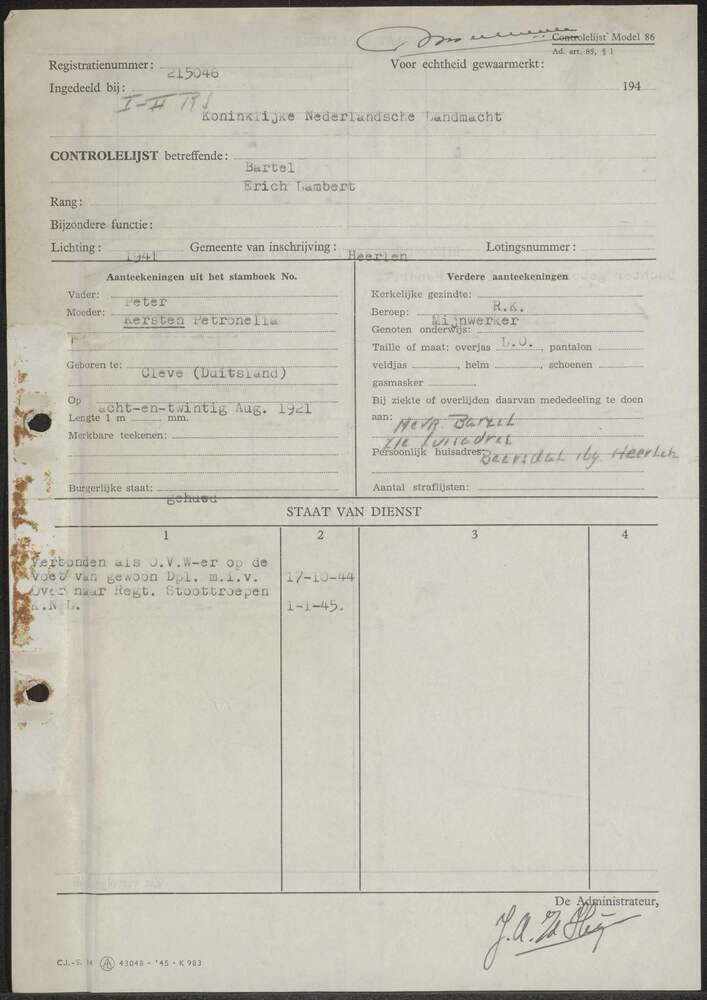 Controlelijst Model 86
Ad. art. 85, § 1
Registratienummer: 215046
Voor echtheid gewaarmerkt:
Ingedeeld bij: I-II RS
194
Koninklijke Nederlandsche Landmacht
CONTROLELIJST betreffende:
Bartel
Erich Lambert
Rang:
Bijzondere functie:
Lichting: 1941 Gemeente van inschrijving: Heerlen Lotingsnummer:
Aanteekeningen uit het stamboek No.
Vader: Peter
Moeder: Kersten Petronella
Geboren te:
Cleve (Duitsland)
Op acht-en-twintig Aug. 1921
Lengte 1 m mm.
Merkbare teekenen:
Burgerlijke staat: gehuwd
Verdere aanteekeningen
Kerkelijke gezindte: R.K.
Beroep: Mijnwerker
Genoten onderwijs: L.O.
Taille of maat: overjas , pantalon
veldjas , helm , schoenen
gasmasker
Bij ziekte of overlijden daarvan mededeeling te doen
aan: Mevr. Bartel
zie huisadres
Persoonlijk huisadres: Beersdal bij Heerlen
Aantal straflijsten:
STAAT VAN DIENST
1 2 3 4
Verbonden als O.V.W-er op de
voet van gewoon Dpl. m.i.v. 17-10-44
Over naar Regt. Stoottroepen
K.N.L. 1-1-45.
De Administrateur,
C.I.-S. 14 43048 - '45 - K 983